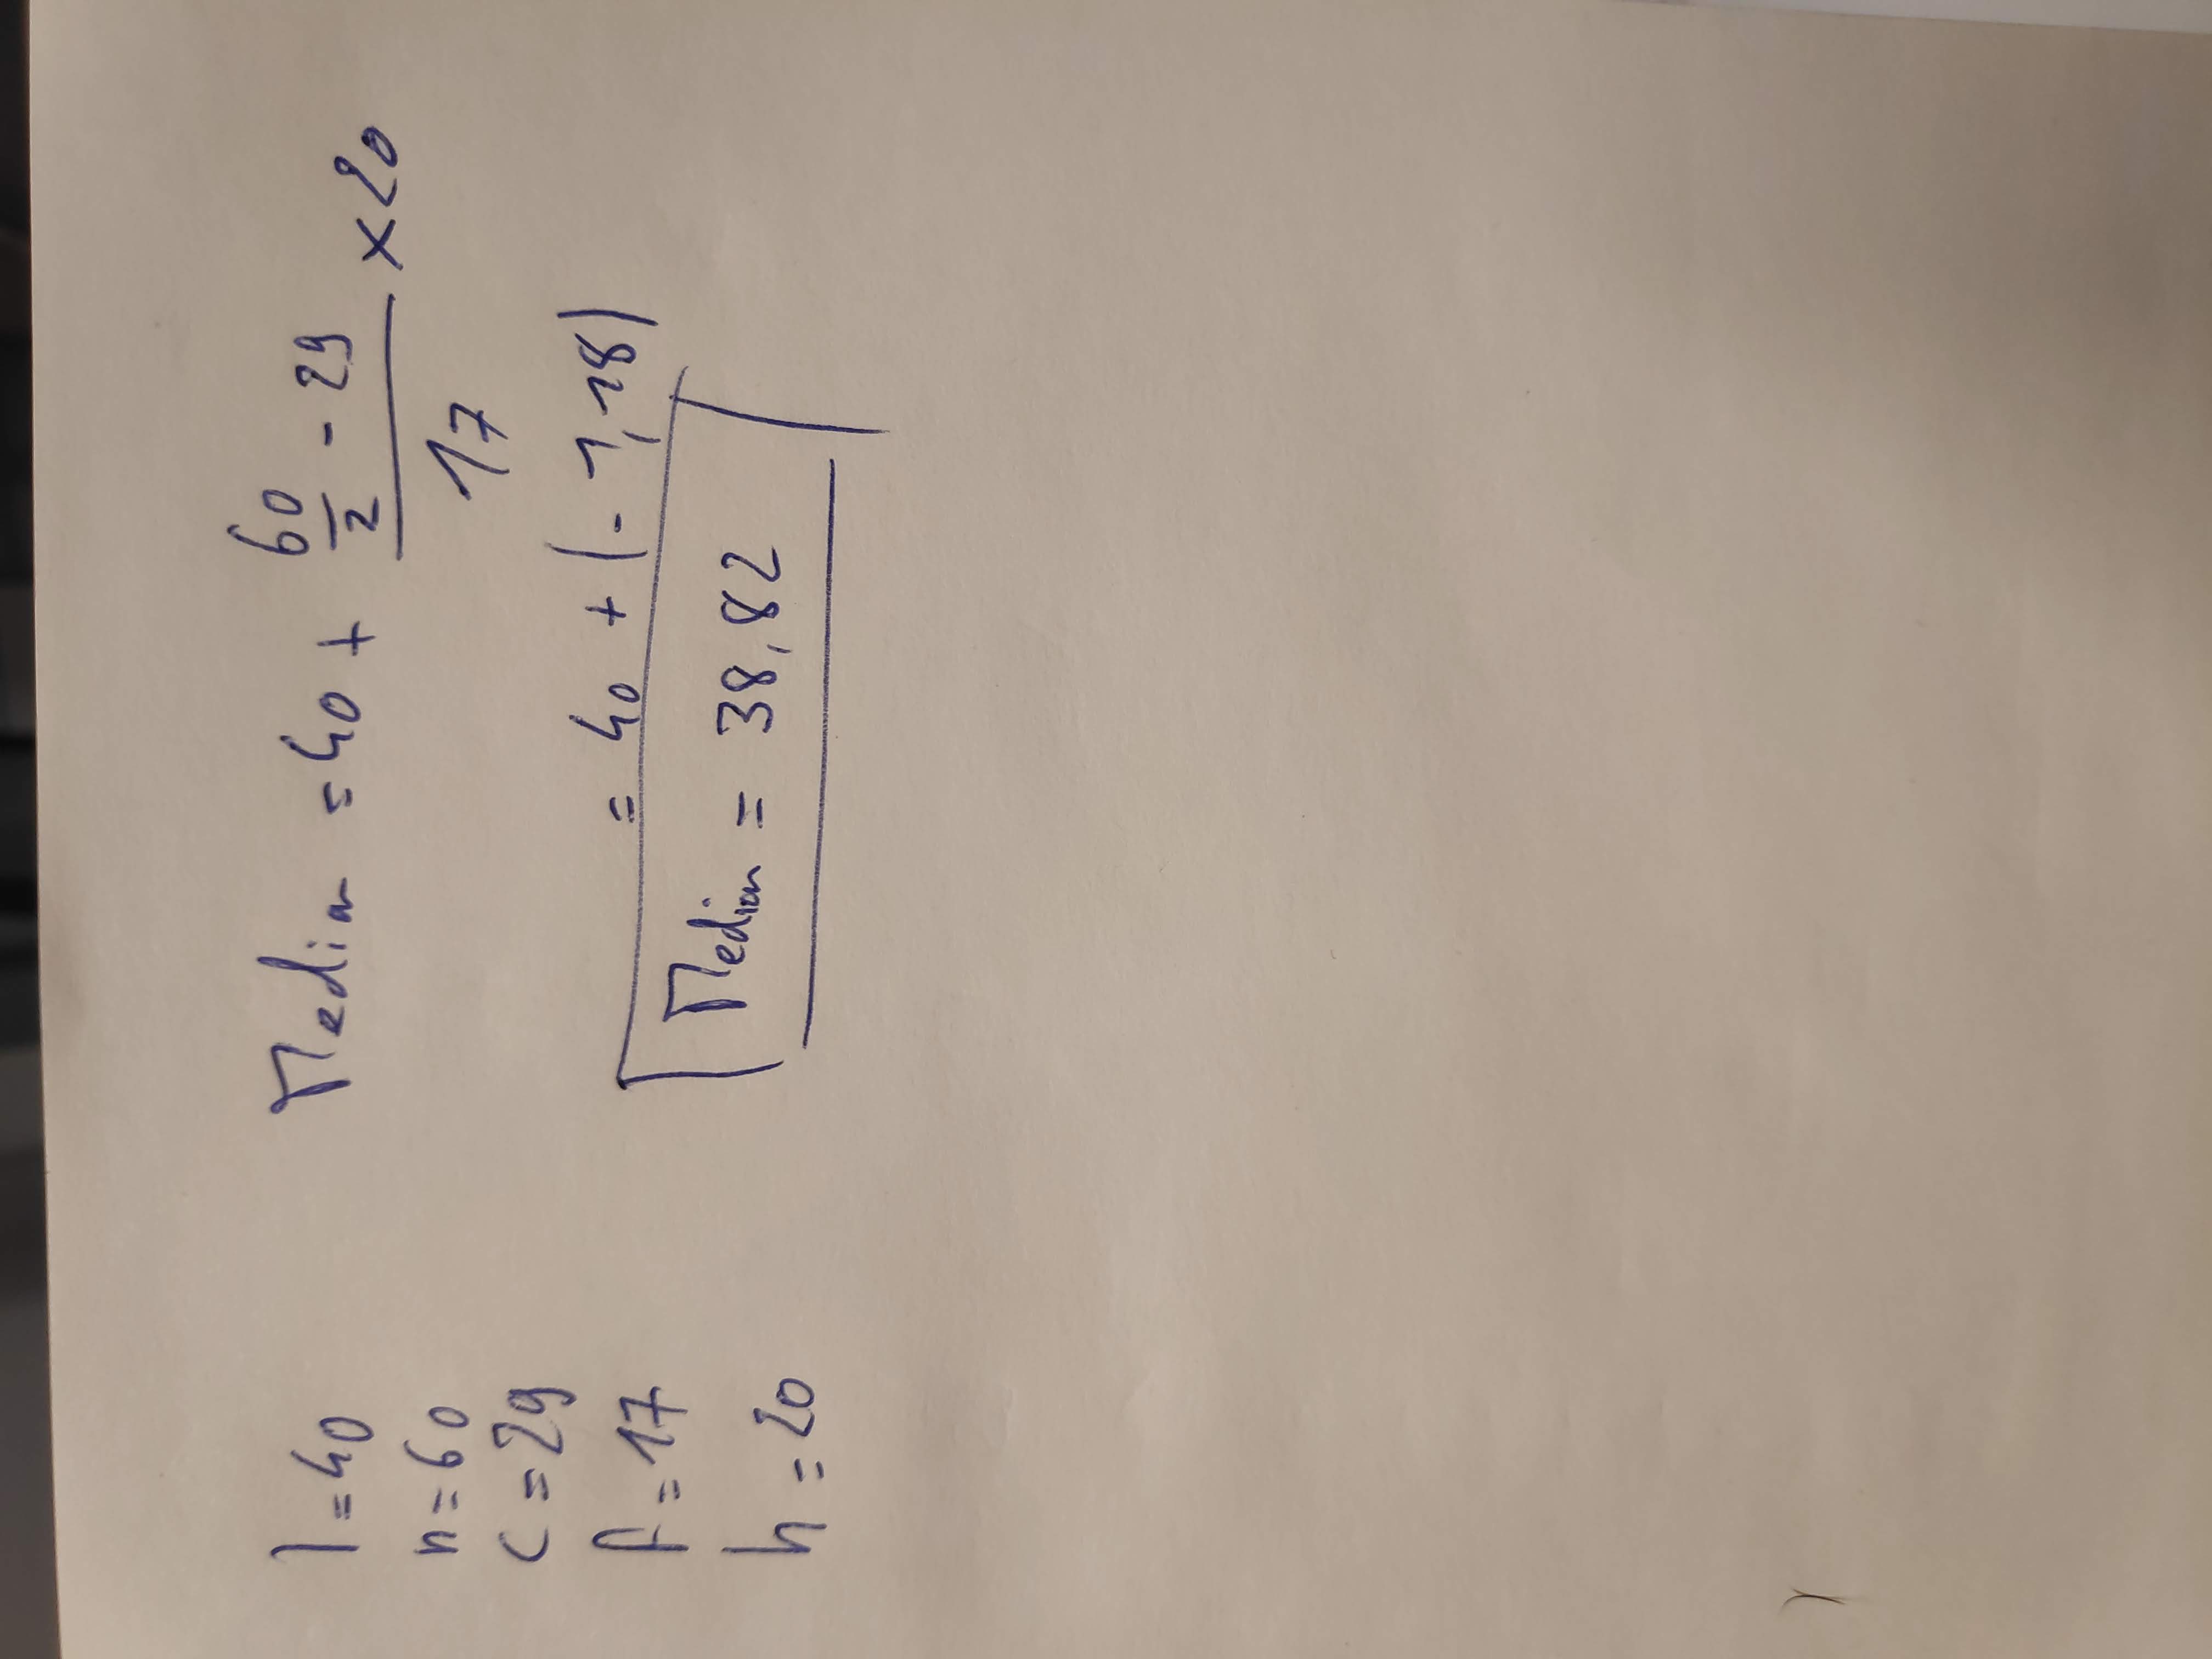 l = 40
n = 60
c = 29
f = 17
h = 20
Median = 40 + (60/2 - 29)/17 × 20
= 40 + (- 1,18)
Median = 38,82